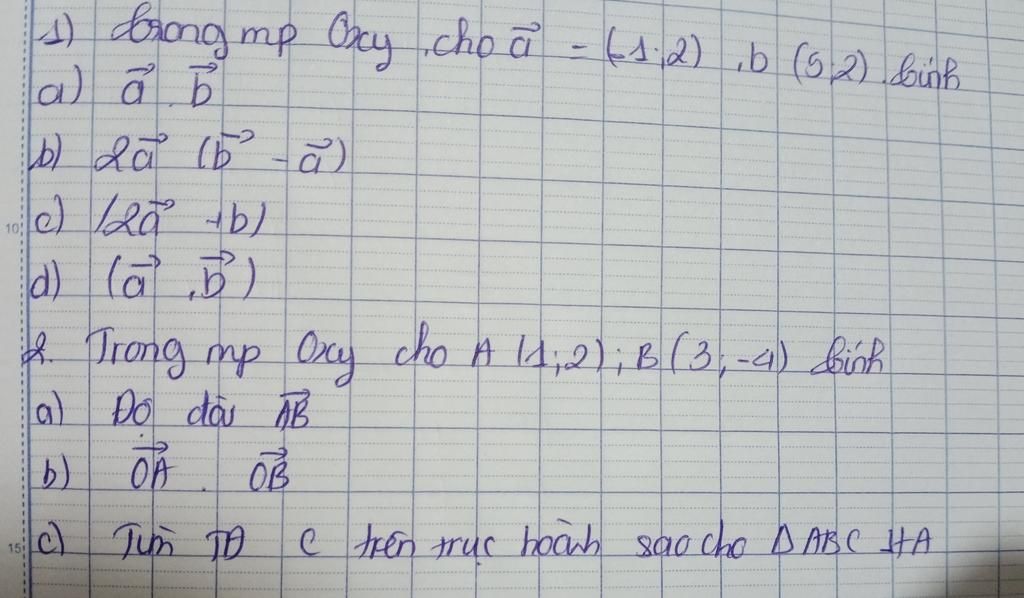 1) trong mp Oxy, cho a⃗ = (-1;2), b (5;2). tính
a) a⃗ . b⃗
b) 2a⃗ (b⃗ - a⃗)
10 c) |2a⃗ + b|
d) (a⃗, b⃗)
2. Trong mp Oxy cho A (1;2); B (3;-4) tính
a) Độ dài A⃗B⃗
b) O⃗A⃗ . O⃗B⃗
15 c) Tìm TĐ C trên trục hoành sao cho Δ ABC ⊥ A